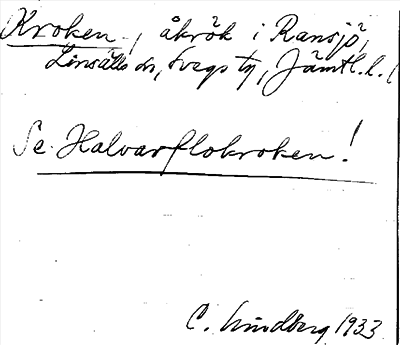 Kroken, åkrök i Ransjö,
Linsälls sn, Svegs tg, Jämtl. l. (
Se Halvarflokroken!
C. Lindberg 1933